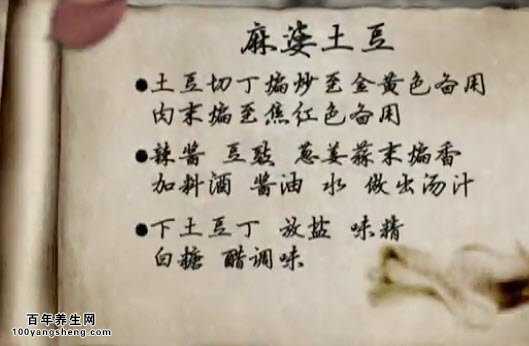 麻婆土豆
●土豆切丁煸炒至金黄色备用
肉末煸至焦红色备用
●辣酱 豆豉 葱姜蒜末煸香
加料酒 酱油 水 做出汤汁
●下土豆丁 放盐 味精
白糖 醋调味
百年养生网
100yangsheng.com